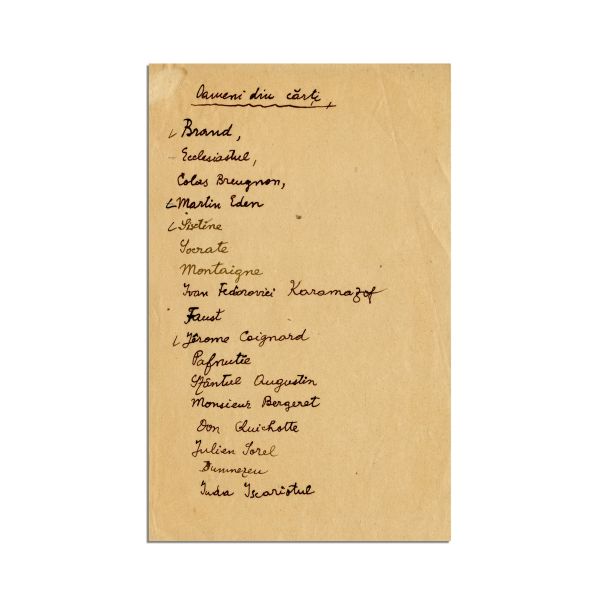 Oameni din cărți,
Brand,
Ecclesiastul,
Colas Breugnon,
Martin Eden
Sixtine
Socrate
Montaigne
Ivan Fedorovici Karamazof
Faust
Jérome Coignard
Pafnutie
Sfântul Augustin
Monsieur Bergeret
Don Quichotte
Julien Sorel
Dumnezeu
Iuda Iscariotul